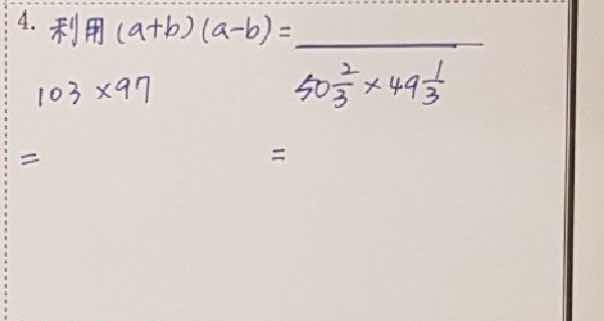 4. 利用 (a+b)(a-b)=________
103 ×97
50 2/3 × 49 1/3
=
=